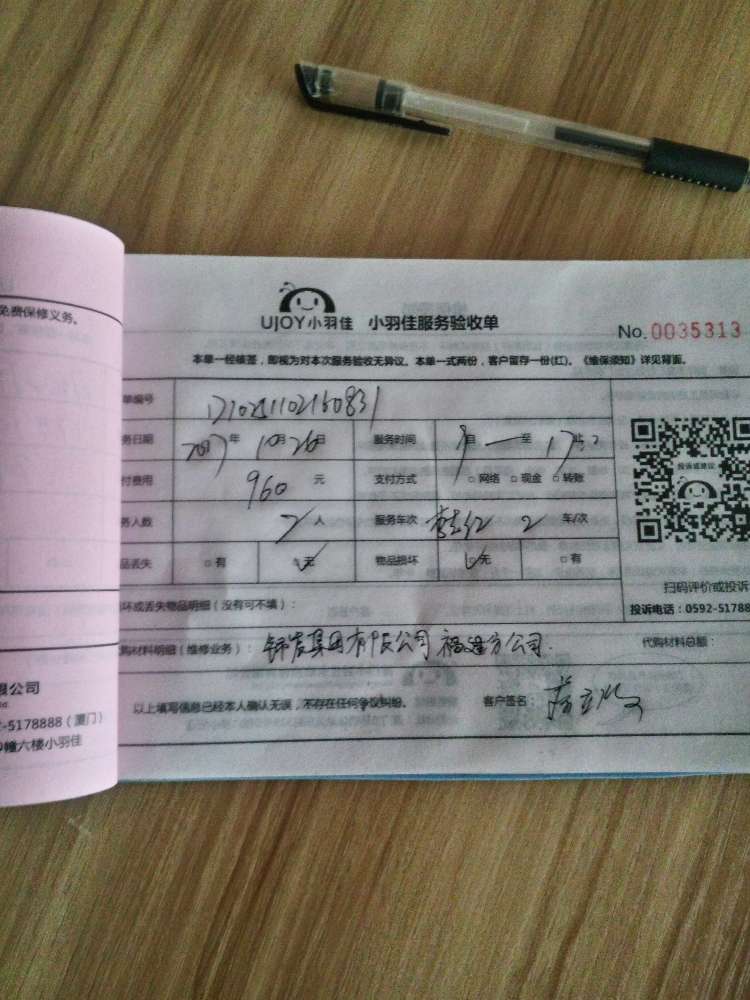 免费保修义务。
UJOY小羽佳 小羽佳服务验收单
No. 0035313
本单一经核签，即视为对本次服务验收无异议。本单一式两份，客户留存一份(红)。《维保须知》详见背面。
单编号
务日期 2017年 10月26日 服务时间 9 自 — 至 17
付费用 960 元 支付方式 □网络 □现金 □转账
务人数 2人 服务车次 2 车/次
品丢失 □有 □无 物品损坏 □无 □有
投诉或建议
扫码评价或投诉
投诉电话：0592-51788
坏或丢失物品明细（没有可不填）：
购材料明细（维修业务）： 集团有限公司福建分公司. 代购材料总额：
以上填写信息已经本人确认无误，不存在任何争议纠纷。 客户签名：
限公司
2-5178888（厦门）
9幢六楼小羽佳